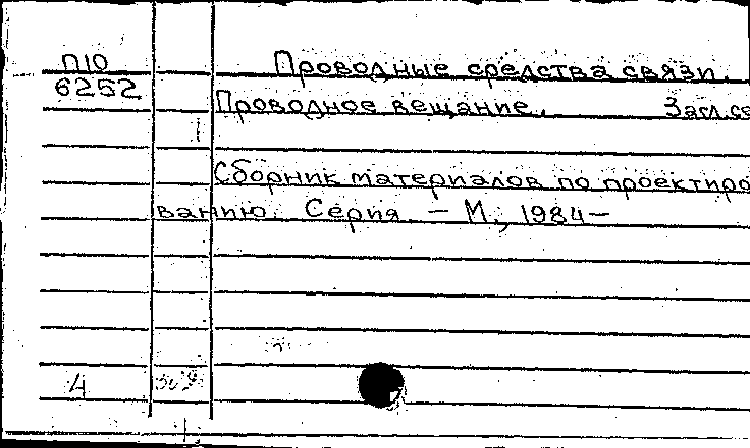 П10
6252
Проводные средства связи.
Проводное вещание. Загл. се
Сборник материалов по проектиро
ванию. Серия. — М., 1984—
4